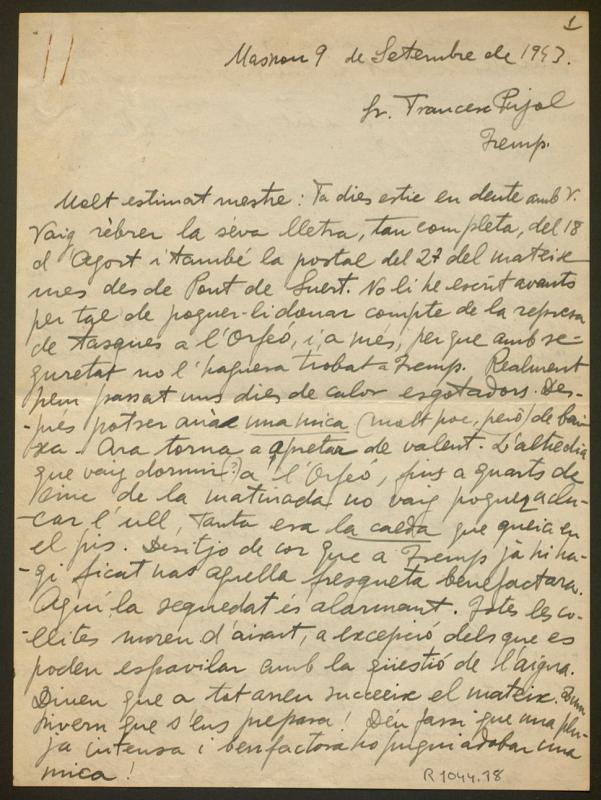 1
Masnou 9 de Setembre de 1943.
Sr. Francesc Pujol
Tremp.
Molt estimat mestre: Ja dies estic en deute amb V.
Vaig rèbrer la séva lletra, tan completa, del 18
d'Agost i també la postal del 27 del mateix
mes des de Pont de Suert. No li he escrit avants
per tal de poguer-li donar compte de la represa
de tasques a l'Orfeó, i, a més, per que amb se-
guretat no l'haguera trobat a Tremp. Realment
hem passat uns dies de calor esgotadors. Des-
-prés potser anà una mica (molt poc, però) de bai-
xa. Ara torna a apretar de valent. L'altre dia
que vaig dormir (?) a l'Orfeó, fins a quarts de
cinc de la matinada no vaig poguer aclu-
-car l'ull, tanta era la calda que queia en
el pis. Désitjo de cor que a Tremp jà hi ha-
-gi ficat nas aquella fresqueta benefactora.
Aquí la sequedat és alarmant. Totes les co-
-llites moren d'aixut, a excepció dels que es
poden espavilar amb la qüestió de l'aigua.
Diuen que a tot arreu succeeix el mateix. Bon
hivern que s'ens prepara! Déu fassi que una plu-
-ja intensa i benfactora ho pugui adobar una
mica!
R 1044.18